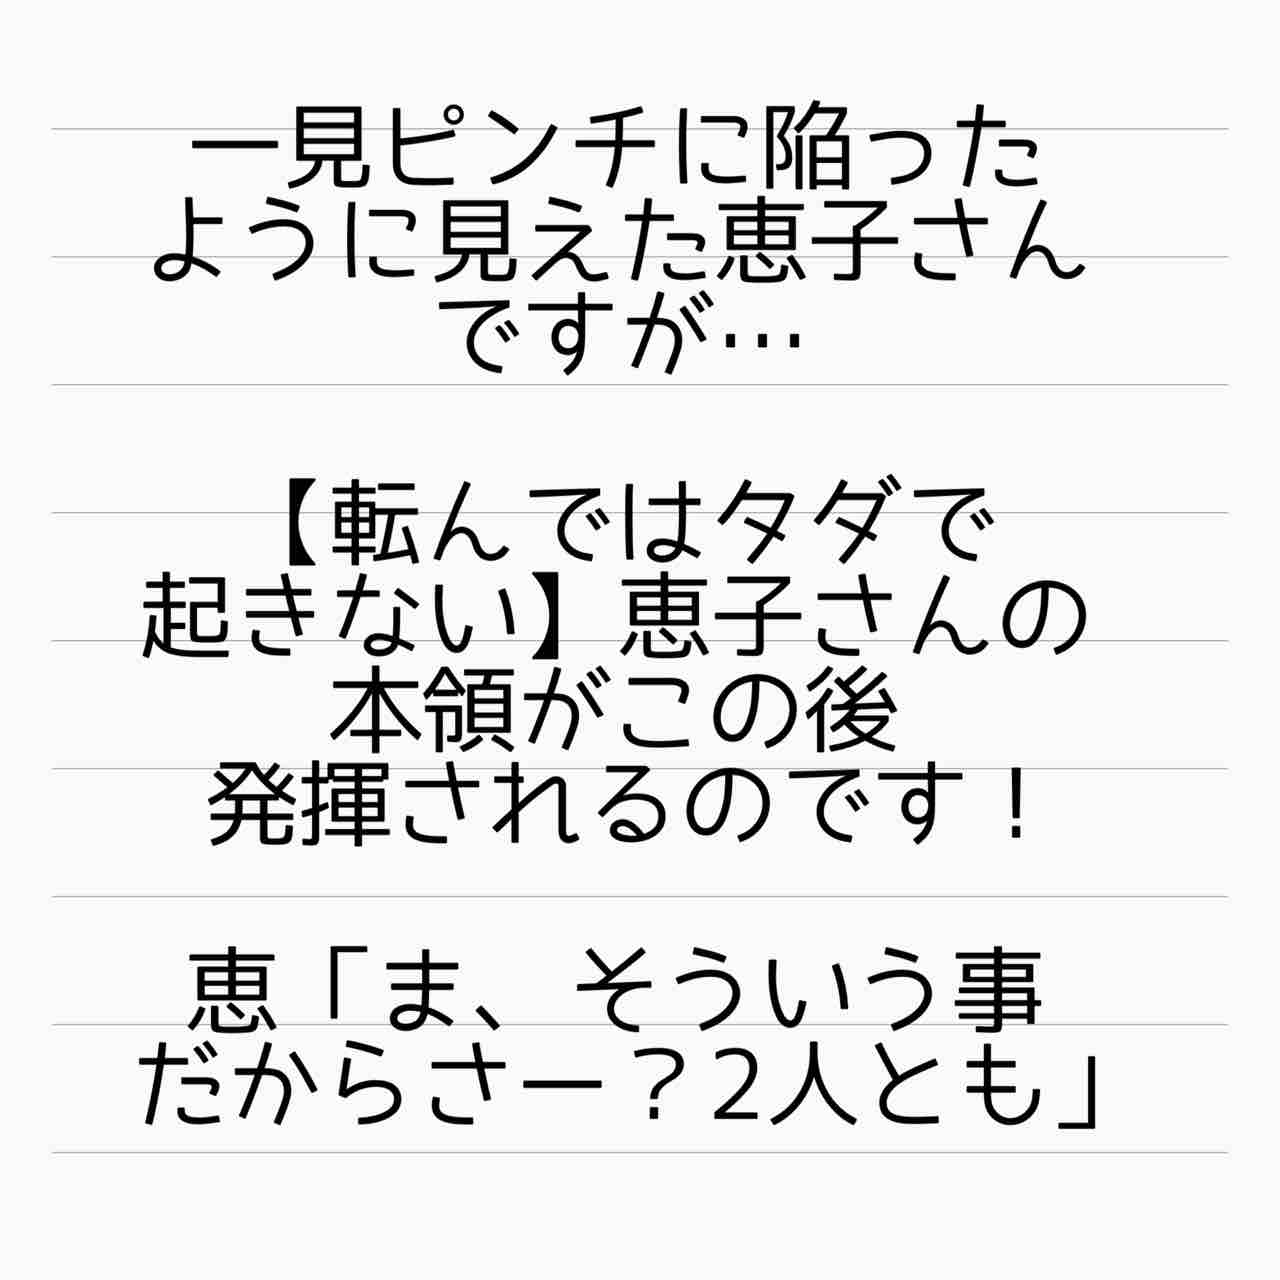 一見ピンチに陥った
ように見えた恵子さん
ですが…
【転んではタダで
起きない】恵子さんの
本領がこの後
発揮されるのです！
恵「ま、そういう事
だからさー？2人とも」